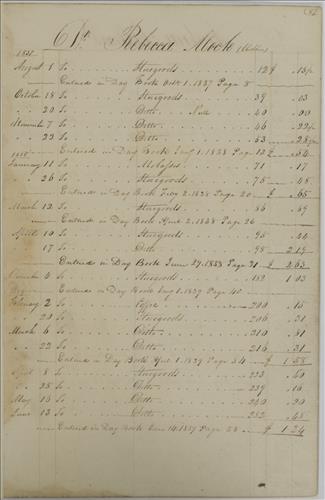 Dr. Rebecca Mook
1837
August 5 To Stuegoods 12 .13
Entered in Day Book Octr 1. 1837 Page 8
October 18 To Stuegoods 39 .03
" 20 To Ditto Null 40 .00
November 7 To Ditto 46 .22
" 22 To Ditto 63 .28
Entered in Day Book Jany 1. 1838 Page 12 $ .54
1838
January 11 To Molasses 71 .17
" 26 To Stuegoods 75 .48
Entered in Day Book Feby 2. 1838 Page 20 $ .65
March 12 To Stuegoods 86 .69
Entered in Day Book April 2. 1838 Page 26
April 10 To Stuegoods 95 .44
17 To Ditto 98 2.19
Entered in Day Book June 27. 1838 Page 31 $ 2.63
4 To Stuegoods 182 1 03
Entered in Day Book Jany 1. 1839 Page 40
February 2 To Coffee 200 .15
" 20 To Stuegoods 206 .31
March 6 To Ditto 210 .81
" 22 To Ditto 216 .31
Entered in Day Book April 1. 1839 Page 54 $ 1.58
April 8 To Stuegoods 223 .40
" 25 To Ditto 239 .16
May 16 To Ditto 240 .20
June 13 To Ditto 252 .48
Entered in Day Book June 14. 1839 Page 58 $ 1.24